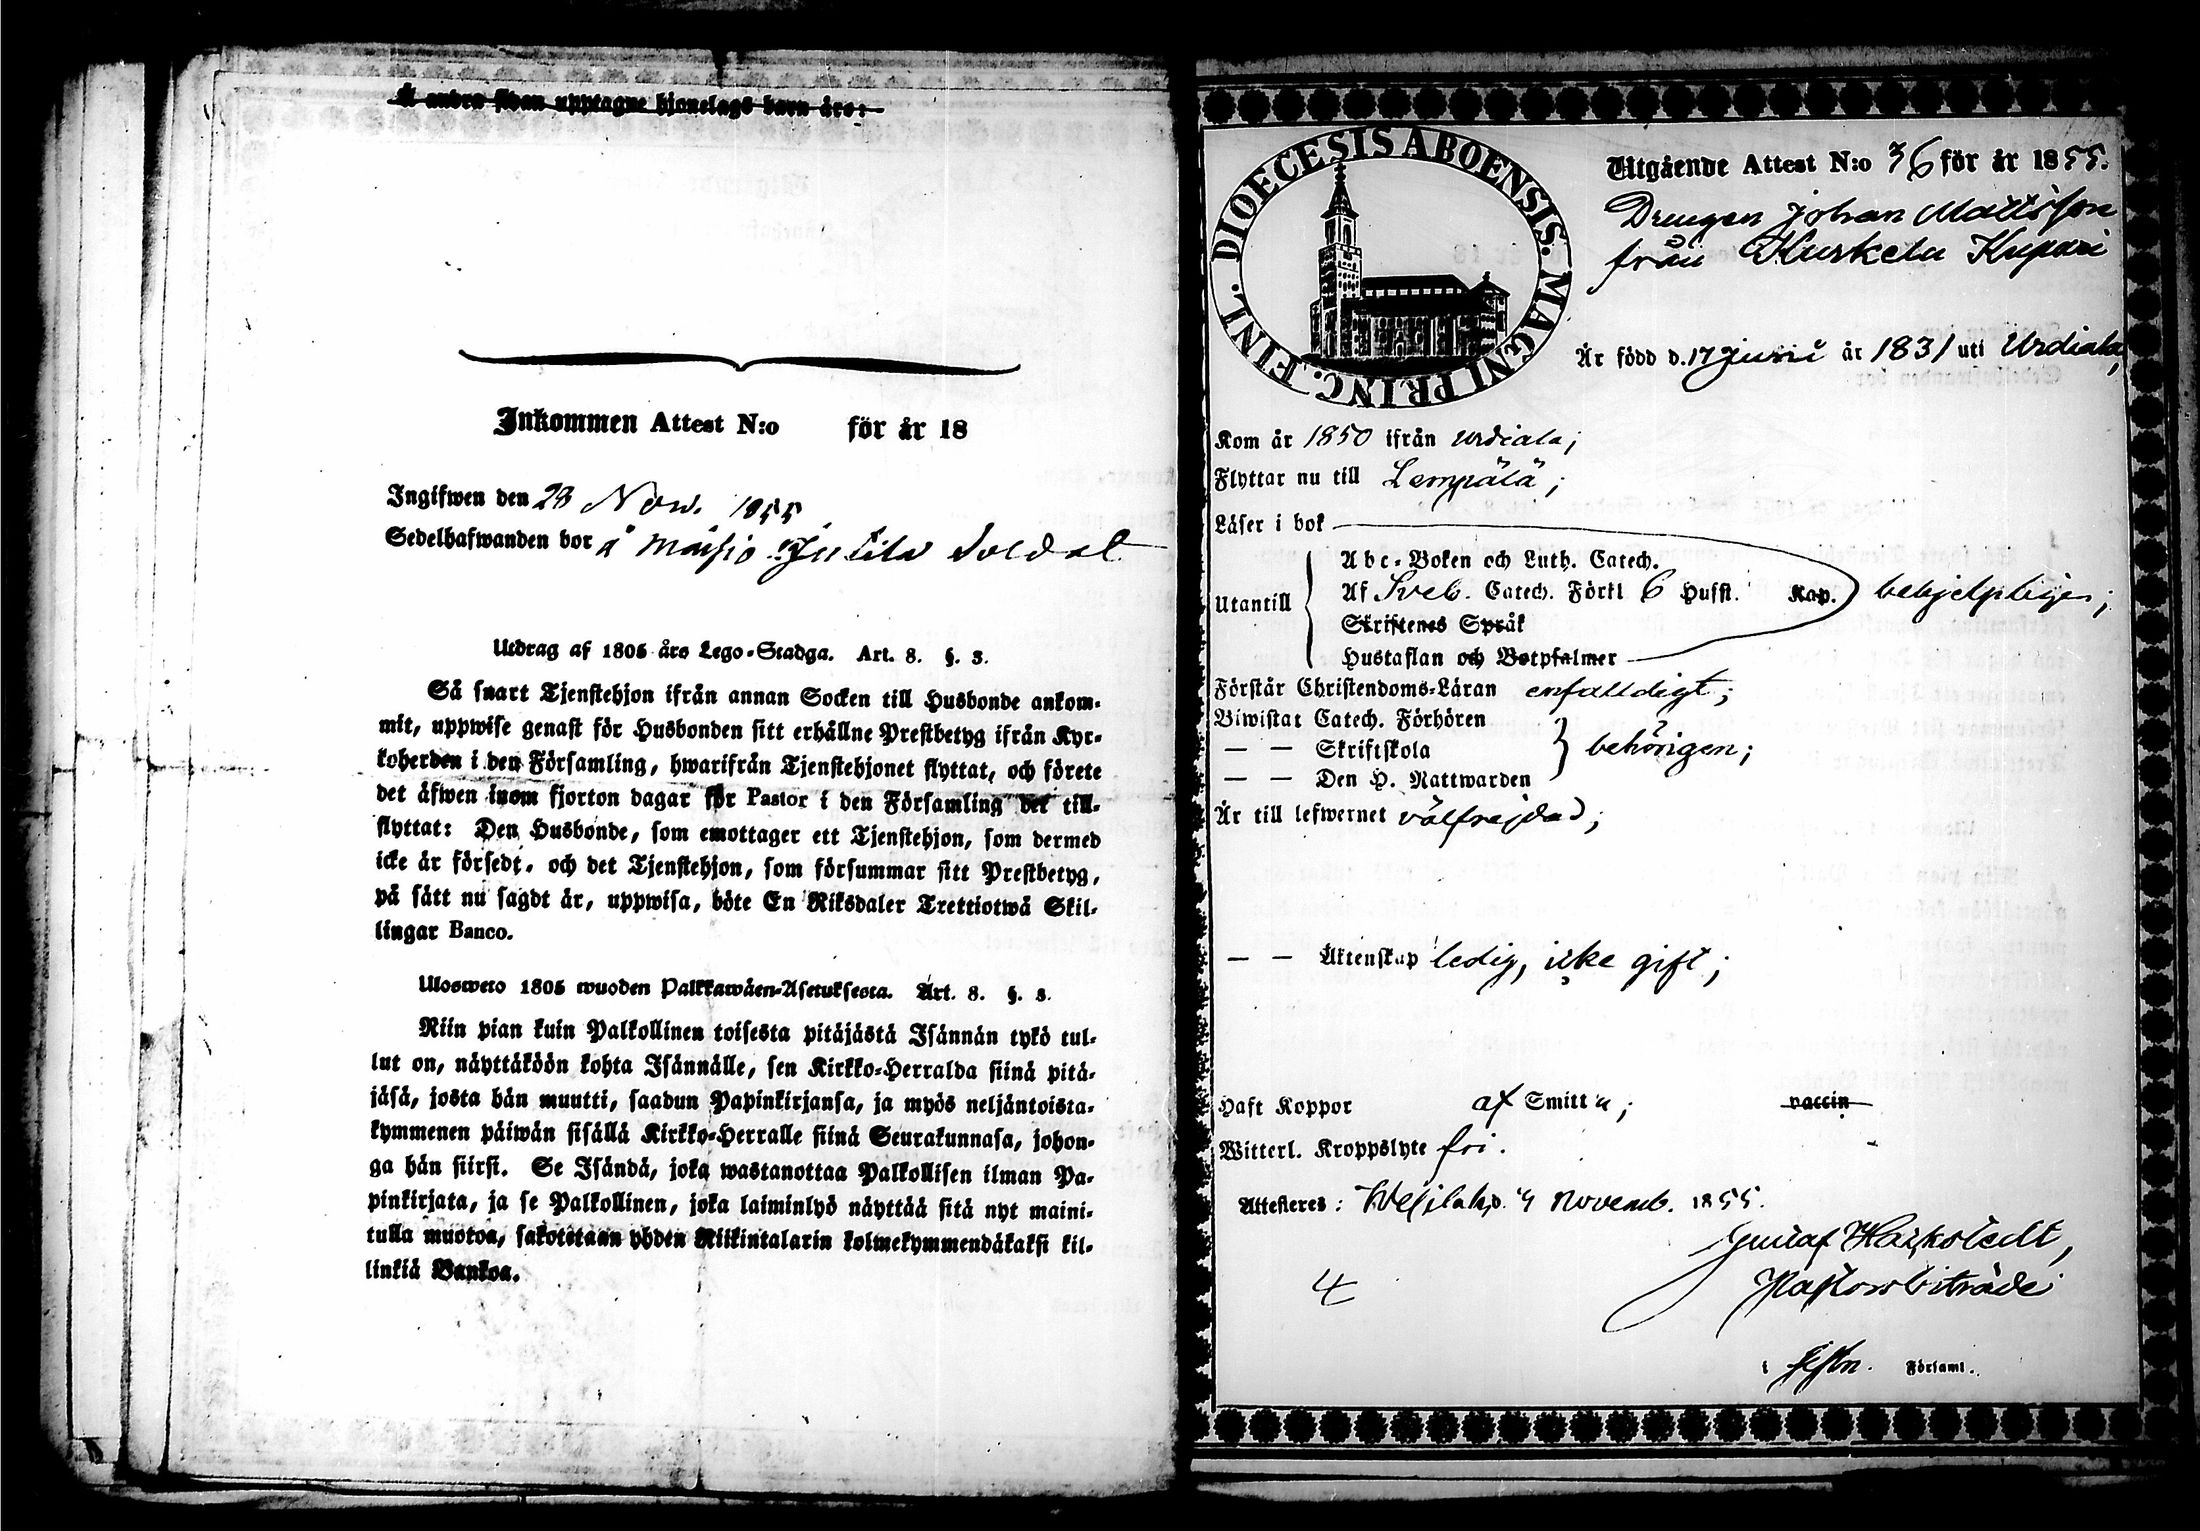 Å andra sidan upptagne hjonelags barn äro:
Inkommen Attest N:o för år 18
Ingifwen den 28 Nov. 1855
Sedelhafwanden bor å Moisio Soldat
Utdrag af 1805 års Lego-Stadga. Art. 8. §. 3.
Så snart Tjenstehjon ifrån annan Socken till Husbonde ankom-
mit, uppwise genast för Husbonden sitt erhållne Prestbetyg ifrån Kyr-
koherden i den Församling, hwarifrån Tjenstehjonet flyttat, och förete
det äfwen inom fjorton dagar för Pastor i den Församling det till-
flyttat: Den Husbonde, som emottager ett Tjenstehjon, som dermed
icke är försedt, och det Tjenstehjon, som försummar sitt Prestbetyg,
på sätt nu sagdt är, uppwisa, böte En Riksdaler Trettiotwå Skil-
lingar Banco.
Ulosweto 1805 wuoden Palkkawäen-Asetuksesta. Art. 8. §. 3.
Niin pian kuin Palkollinen toisesta pitäjästä Isännän tykö tul-
lut on, näyttäköön kohta Isännälle, sen Kirkko-Herralda siinä pitä-
jäsä, josta hän muutti, saadun Papinkirjansa, ja myös neljäntoista-
kymmenen päiwän sisällä Kirkko-Herralle siinä Seurakunnasa, johon-
ga hän siirsi. Se Isändä, joka wastanottaa Palkollisen ilman Pa-
pinkirjata, ja se Palkollinen, joka laiminlyö näyttää sitä nyt maini-
tulla muotoa, sakotetaan yhden Riikintalarin kolmekymmendäkaksi kil-
linkiä Bankoa.
DIOECESIS ABOENSIS. MAGNI PRINC. FINL.
Utgående Attest N:o 36 för år 1855.
Drengen Johan Mattsson
från Kurkela Kupari
Är född d. 17 Junii år 1831 uti Urdiala,
Kom år 1850 ifrån Urdiala;
Flyttar nu till Lempälä;
Läser i bok
Abc-Boken och Luth. Catech.
Utantill Af Sveb. Catech. Förkl 6 Hufst. Kap. behjelpligen;
Skriftenes Språk
Hustaflan och Botpsalmer
Förstår Christendoms-Läran enfaldigt;
Biwistat Catech. Förhören
— — Skriftskola behörigen;
— — Den H. Nattwarden
Är till lefwernet välfrejdad;
— — Äktenskap ledig, icke gift;
Haft Koppor af Smitta; vaccin
Witterl. Kroppslyte fri.
Attesteres: Wesilaks d. 4 Novemb. 1855.
Gustaf
Pastorsbiträde
i Församl.
4